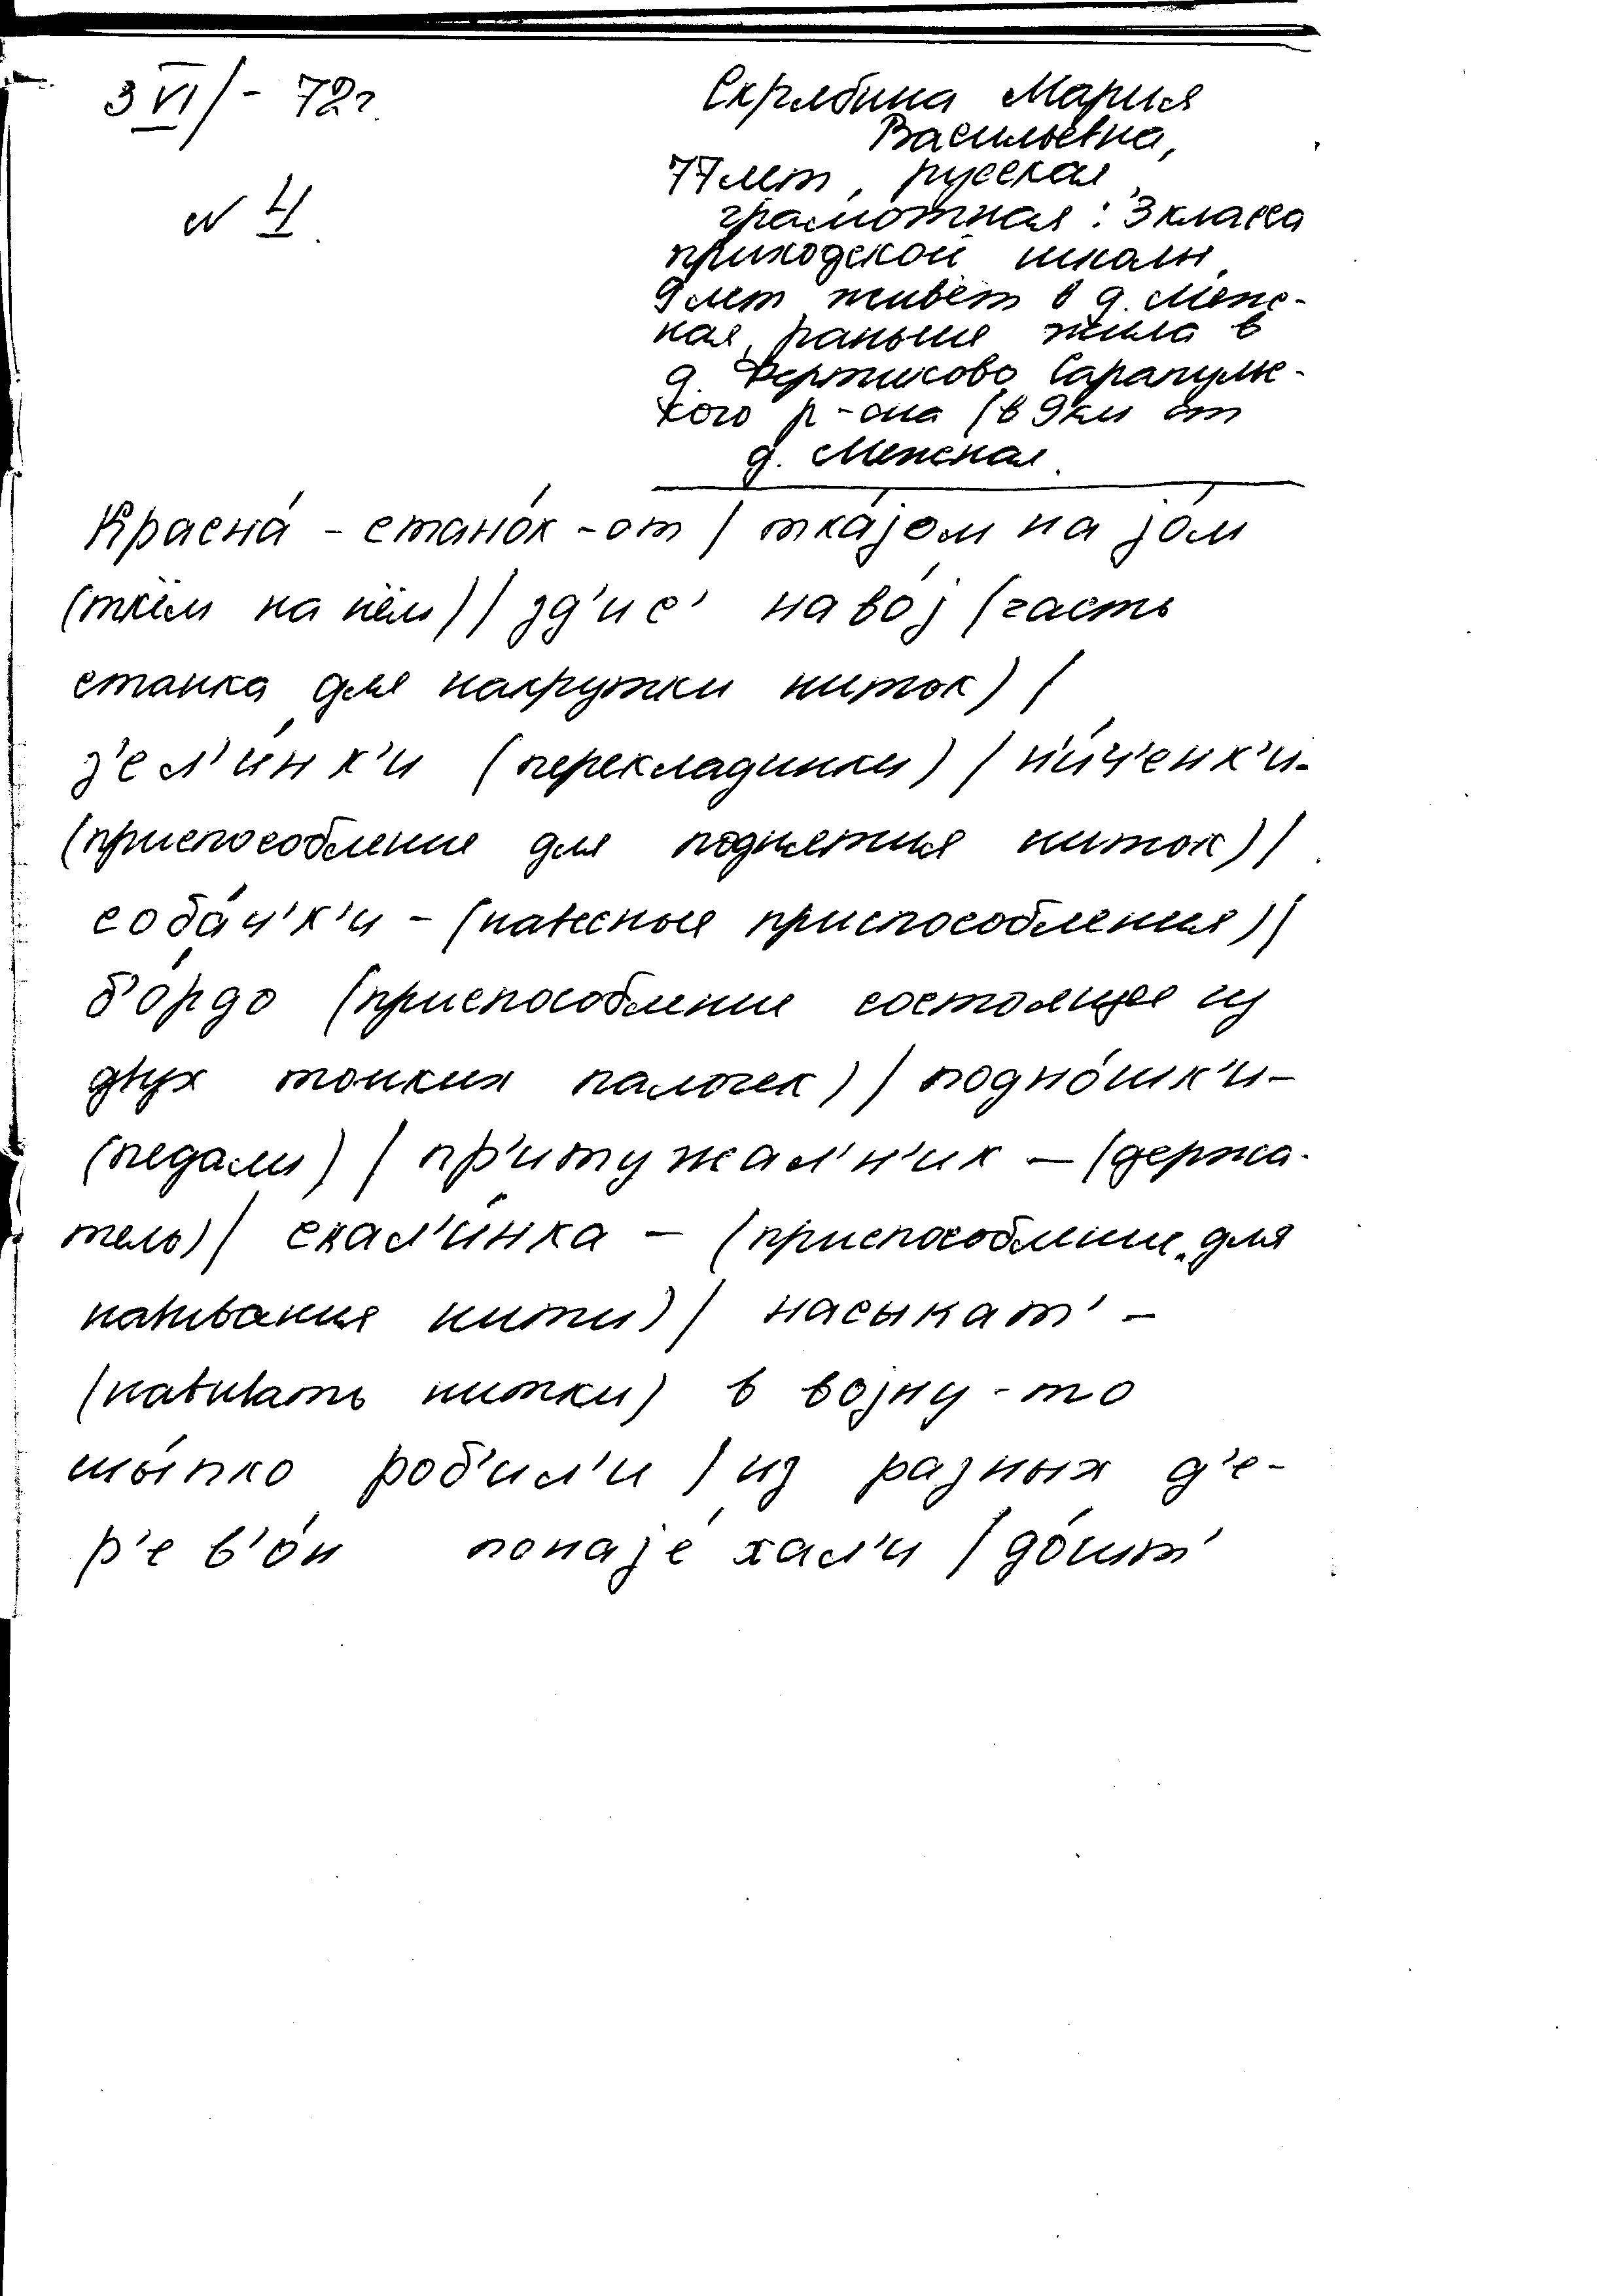 3 VI/ - 72г.
Скрябина Мария
Васильевна,
№ 4.
77 лет, русская,
грамотная: 3 класса
приходской школы,
9 лет живёт в д. Менс-
кая, раньше жила в
д. Сарапульс-
кого р-она (в 9 км от
д. Менская.
Краснá - станóк-от / ткáјом на јóм
(ткём на нём) // зд'ис' навóј (часть
станка для нагрузки ниток) /
з'ел'и́нк'и (перекладинки) / н'и́ч'енк'и-
(приспособление для поднятия ниток) /
собáч'к'и - (навесные приспособления) /
б'óрдо (приспособление состоящее из
двух тонких палочек) / поднóшк'и-
(педали) / пр'итужал'н'ик - (держа-
тель) / скал'и́нка - (приспособление для
навивания нити) / насыкат' -
(навивать нитки) в војну-то
шы́пко роб'ил'и / из разных д'е-
р'ев'óн понајéхал'и / дóшт'